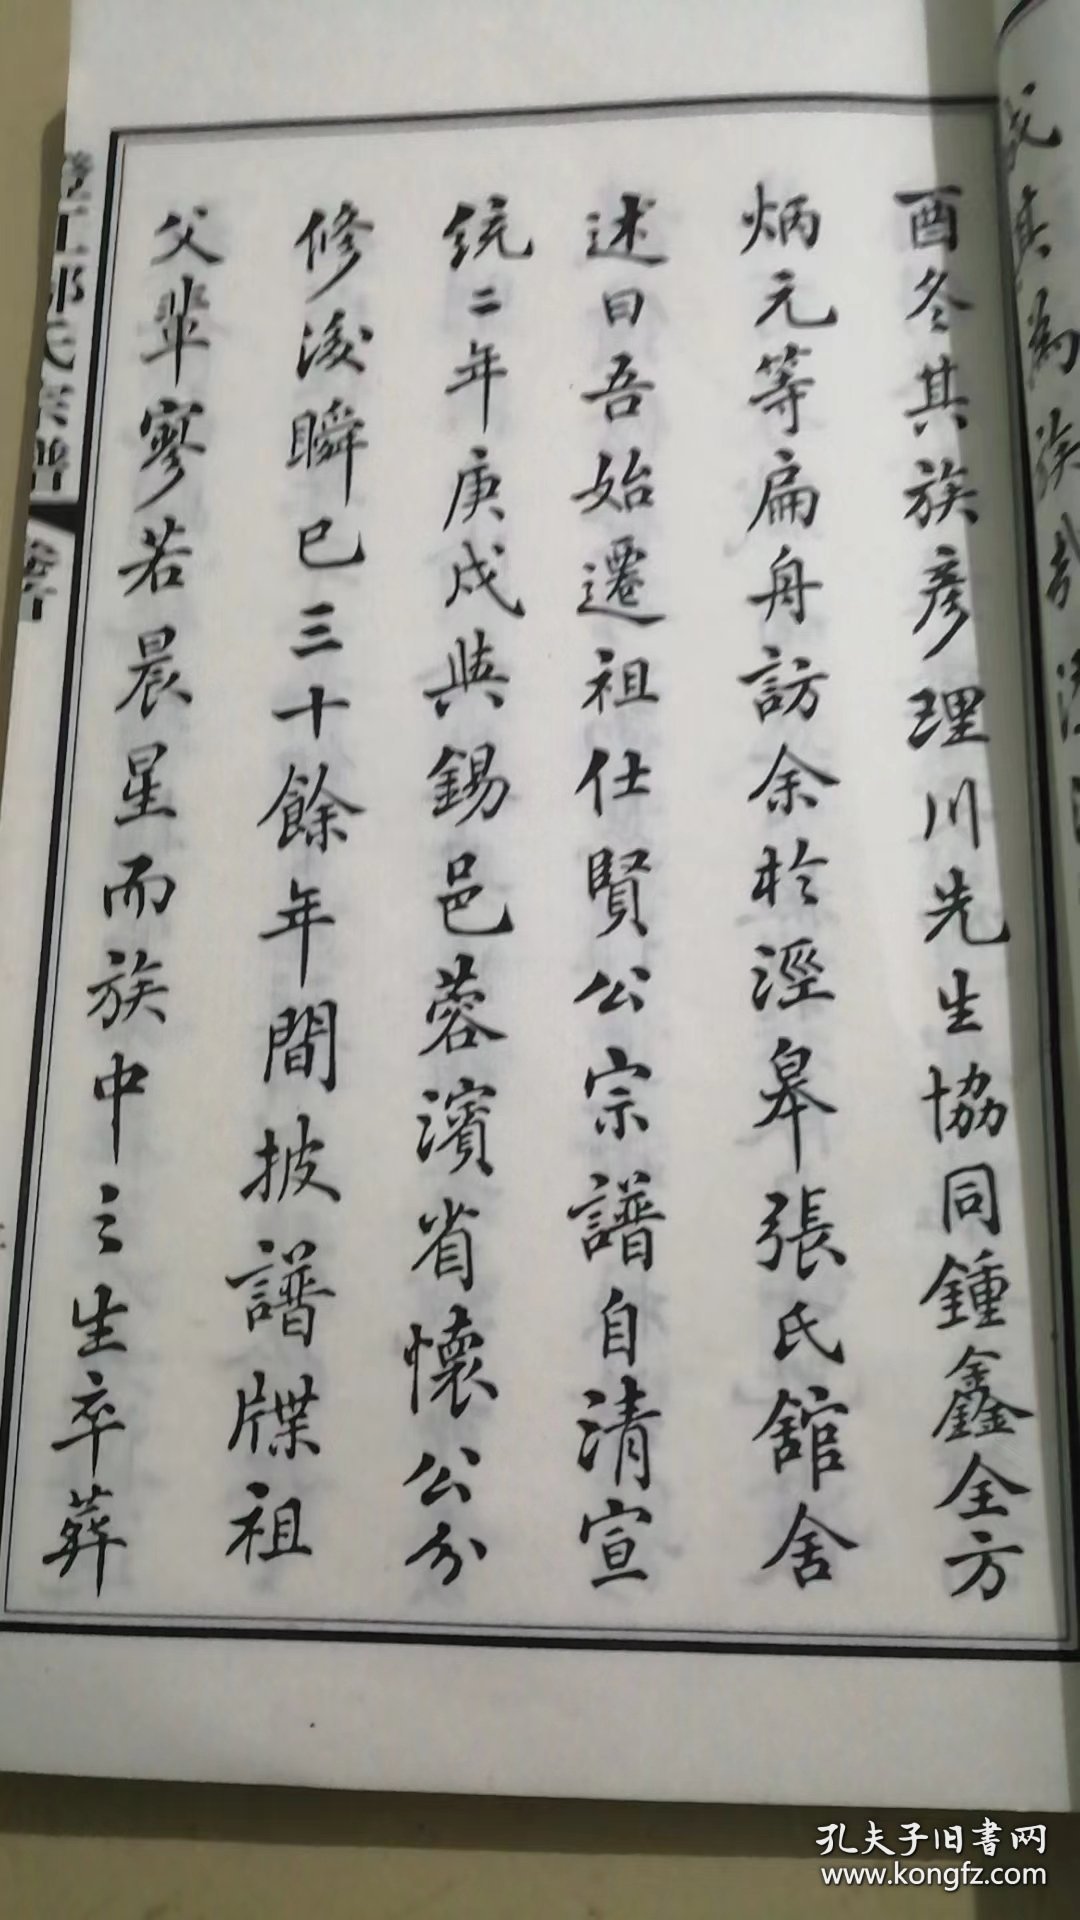 酉冬其族彦理川先生協同鍾鑫全方
炳元等扁舟訪余於涇皋張氏舘舍
述曰吾始遷祖仕賢公宗譜自清宣
統二年庚戌與錫邑蓉濱省懷公分
修後瞬已三十餘年間披譜牒祖
父輩寥若晨星而族中之生卒葬
氏宗譜
孔夫子旧書网
www.kongfz.com